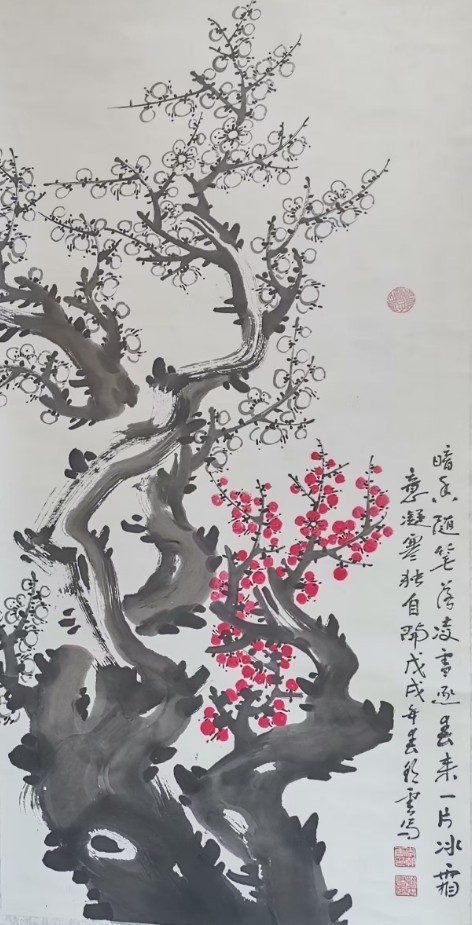 暗香随笔落凌雪迎春来一片冰霜
意凝寒独自開戊戌年春雲写